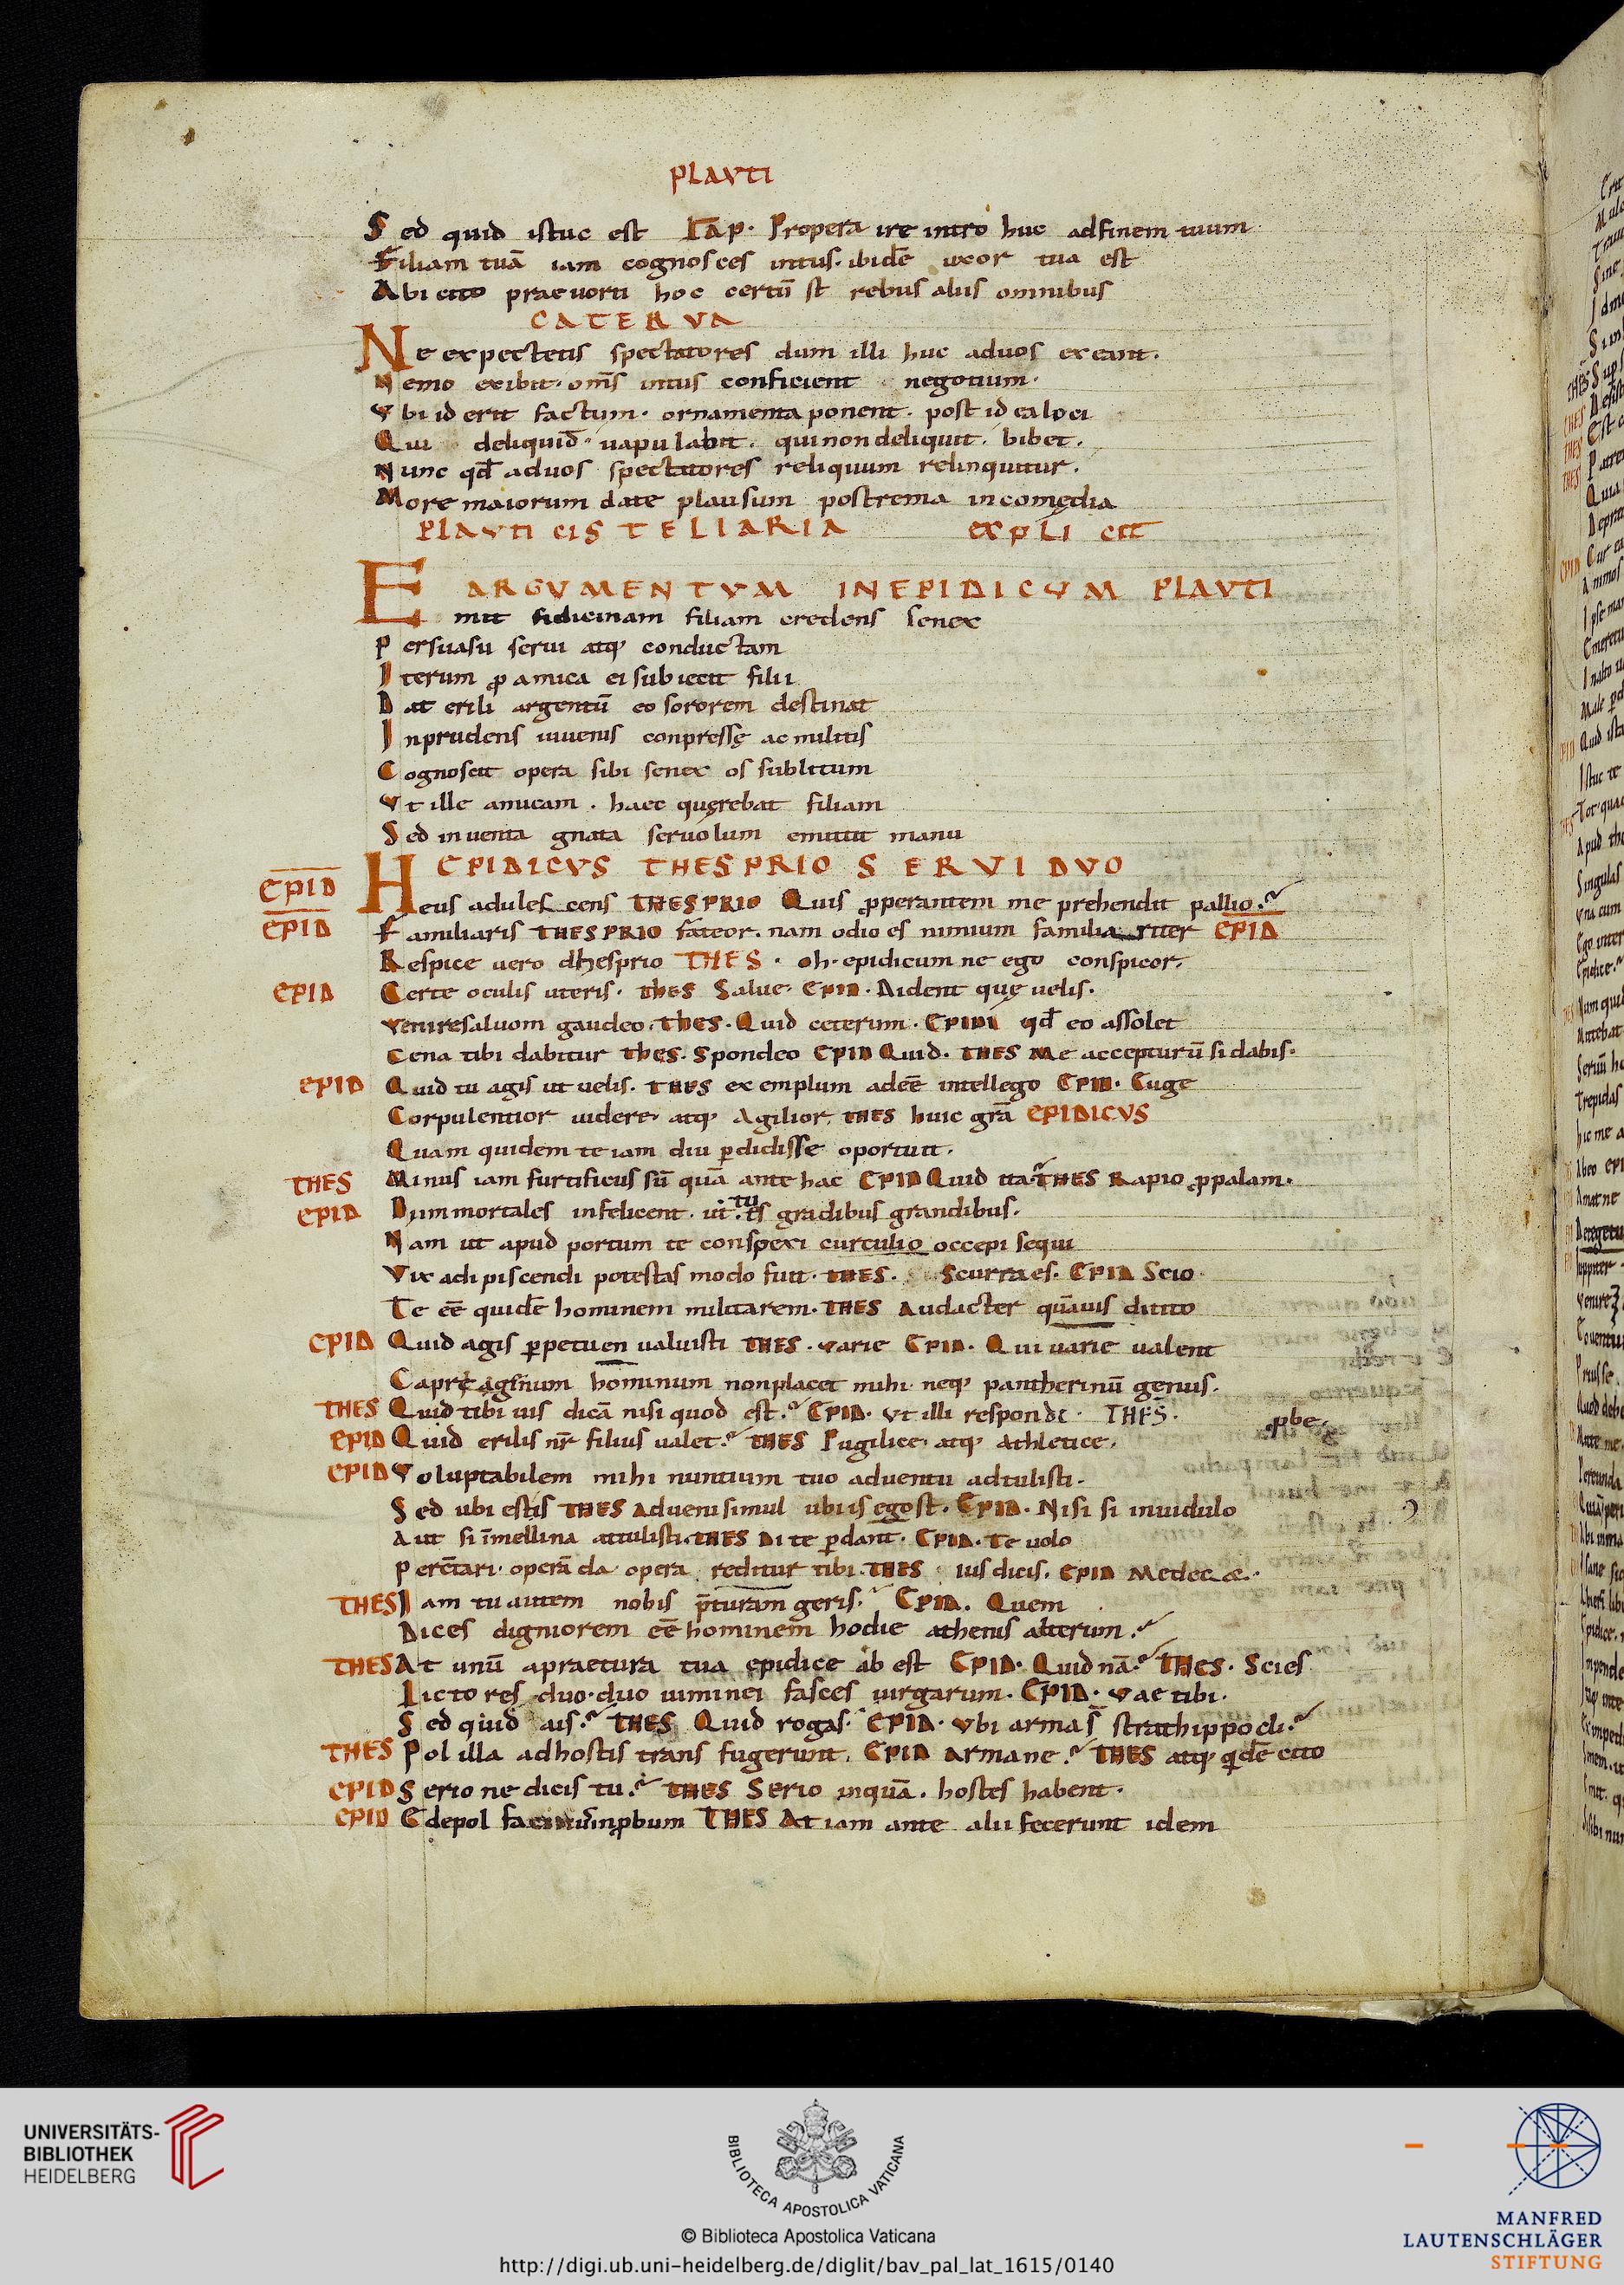 PLAVTI
Sed quid istuc est LAp. Propera ire intro huc adfinem tuum
Filiam tuā iam cognosces intus. ibidē uxor tua est
Abi cito praeuorti hoc certū st rebus aliis omnibus
CATERVA
Ne expectetis spectatores dum illi huc aduos exeunt.
Nemo exibit. om̄s intus conficient negotium.
Vbi id erit factum. ornamenta ponent. post id ea loci
Qui deliquid. uapulabit. qui non deliquit. bibet.
Nunc qđ aduos spectatores reliquum relinquitur.
More maiorum date plausum postrema in comędia
PLAVTI CISTELIARIA EXPLICIT
ARGVMENTVM IN EPIDICVM PLAVTI
Emit fidicinam filiam credens senex
Persuasu serui atq; conductam
Iterum ꝓ amica ei subiecit filii
Dat erili argentū eo sororem destinat
Inprudens iuuenis conpressę ac militis
Cognoscit opera sibi senex os sublitum
Vt ille amicam. haec quęrebat filiam
Sed inuenta gnata seruolum emittit manu
EPIDICVS THESPRIO SERVI DVO
EPID Heus adulescens THESPRIO Quis ꝓperantem me prehendit pallio.?
EPID Familiaris THESPRIO fateor. nam odio es nimium familiariter EPID
Respice uero dhesprio THES. oh. epidicum ne ego conspicor.
EPID Certe oculis uteris. THES Salue. EPID. Di dent quę uelis.
Venire saluom gaudeo. THES. Quid ceterum. EPIDI qđ eo assolet
Cena tibi dabitur THES. Spondeo EPID Quid. THES Me accepturū si dabis.
EPID Quid tu agis ut uelis. THES exemplum adeē intellego EPID. Euge
Corpulentior uidere. atq; Agilior. THES huic grā EPIDICVS
Quam quidem te iam diu ꝑdidisse oportuit.
THES Minus iam furtificus sū quā ante hac EPID Quid ita? THES Rapio ꝓpalam.
EPID Di immortales infelicent. ut tu es gradibus grandibus.
Nam ut apud portum te conspexi curculio occepi sequi
Vix adipiscendi potestas modo fuit. THES. Scurra es. EPID Scio.
Te eē quidē hominem militarem. THES Audacter quāuis dicito
EPID Quid agis ꝑpetuen ualuisti THES. Varie EPID. Qui uarie ualent
Capreaginum hominum non placet mihi neq; pantherinū genus.
THES Quid tibi uis dicā nisi quod est.? EPID. Vt illi respondi. THES. ꝓbe.
EPID Quid erilis nr̄ filius ualet.? THES Pugilice. atq; Athletice.
EPID Voluptabilem mihi nuntium tuo aduentu adtulisti.
Sed ubi estis THES Adueni simul ubi is egost. EPID. Nisi si inuidulo
Aut si īmellina attulisti. THES Di te ꝑdant. EPID. Te uolo
Percētari. operā da. opera reditur tibi. THES ius dicis. EPID Me decæ.
THES Iam tu autem nobis p̄turam geris.? EPID. Quem
Dices digniorem eē hominem hodie athenis alterum.?
THES At unū apraetura tua epidice ab est EPID. Quid nā.? THES. Scies
Lictores duo. duo uiminei fasces uirgarum. EPID. Vae tibi.
Sed quid ais.? THES Quid rogas. EPID. Vbi arma s̄ strathippocli.?
THES Pol illa ad hostis trans fugerunt. EPID Armane.? THES atq; qͥdē cito
EPID Serio ne dicis tu.? THES Serio inquā. hostes habent.
EPID Edepol facinus inꝓbum THES At iam ante alii fecerunt idem
UNIVERSITÄTS-
BIBLIOTHEK
HEIDELBERG
BIBLIOTECA APOSTOLICA VATICANA
© Biblioteca Apostolica Vaticana
http://digi.ub.uni-heidelberg.de/diglit/bav_pal_lat_1615/0140
MANFRED
LAUTENSCHLÄGER
STIFTUNG